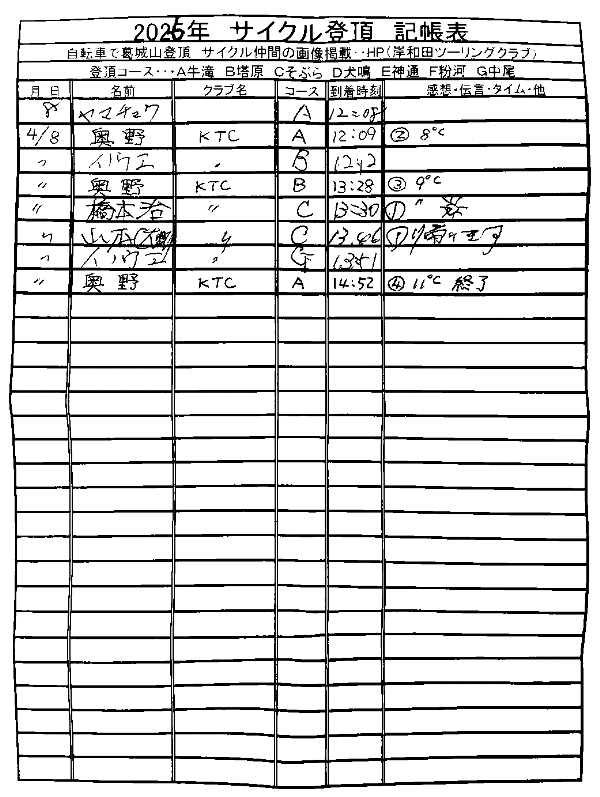 2025年 サイクル登頂 記帳表
自転車で葛城山登頂 サイクル仲間の画像掲載‥HP(岸和田ツーリングクラブ)
登頂コース･･･A牛滝 B塔原 Cそぶら D犬鳴 E神通 F粉河 G中尾
月 日 名前 クラブ名 コース 到着時刻 感想・伝言・タイム・他
8 ヤマチョウ A 12:08
4/8 奥野 KTC A 12:09 ② 8℃
〃 イノウエ 〃 B
〃 奥野 KTC B 13:28 ③ 9℃
〃 橋本治 〃 C 13:30 ① 〃
〃 山本 〃 C 13.46 ①
〃 イノウエ 〃
〃 奥野 KTC A 14:52 ④ 11℃ 終了